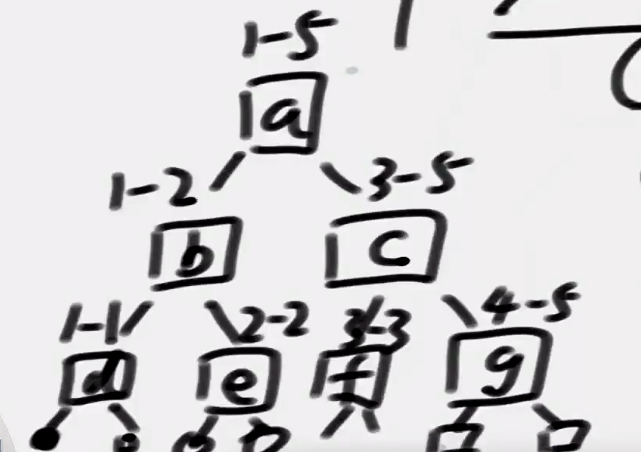 1-5
a
1-2 3-5
b c
1-1 2-2 3-3 4-5
d e f g